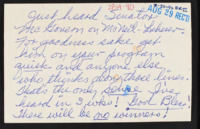 Just heard Senator
McGovern on McNeil-Lehrer.
For goodness sake, get
him on your program
quick and anyone else
who thinks along those lines.
That's the only sense I've
heard in 3 wks! God Bless!
There will be no winners!
AUG 29 REC'D